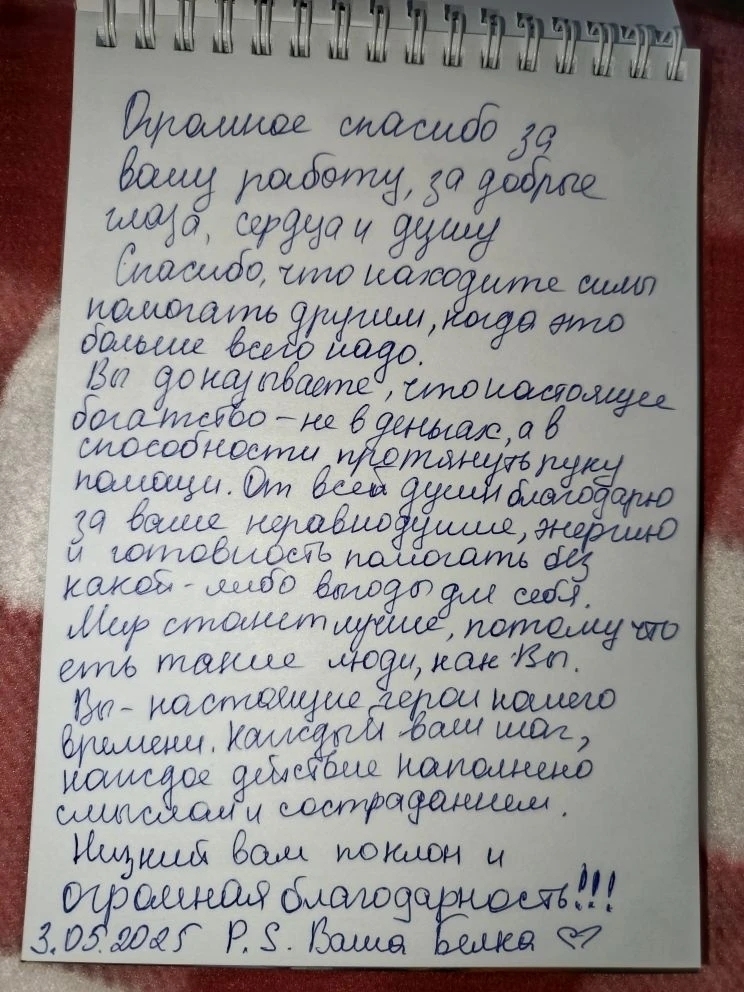 Огромное спасибо за
вашу работу, за добрые
глаза, сердца и душу
Спасибо, что находите силы
помогать другим, когда это
больше всего надо.
Вы доказываете, что настоящее
богатство – не в деньгах, а в
способности протянуть руку
помощи. От всей души благодарю
за ваше неравнодушие, энергию
и готовность помогать без
какой-либо выгоды для себя.
Мир станет лучше, потому что
еть такие люди, как Вы.
Вы – настоящие герои нашего
времени. Каждый ваш шаг,
каждое действие наполнено
смыслом и состраданием.
Низкий вам поклон и
огромная благодарность!!!
3.05.2025 P.S. Ваша Белка ♡